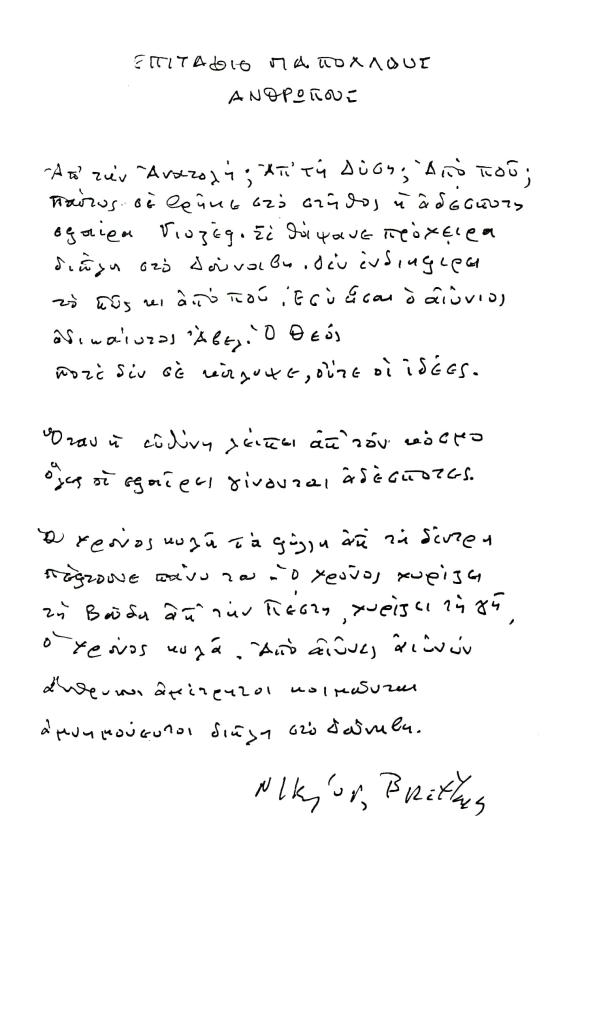 ΕΠΙΤΑΦΙΟ ΓΙΑ ΠΟΛΛΟΥΣ
ΑΝΘΡΩΠΟΥΣ
Ἀπ' τὴν Ἀνατολή; Ἀπ' τὴ Δύση; Ἀπὸ ποῦ;
σὲ βρῆκε στὸ στῆθος ἡ ἀδέσποτη
σφαίρα Γιοζέφ. Σὲ θάψανε πρόχειρα
δίπλα στὸ Δούναβη. Δὲν ἐνδιαφέρει
τὸ πῶς κι ἀπὸ ποῦ. Ἐσὺ εἶσαι ὁ αἰώνιος
ἀδικαίωτος Ἄβελ. Ὁ Θεός
ποτὲ δὲν σὲ κάλυψε, οὔτε οἱ ἰδέες.
Ὅταν ἡ εὐθύνη λείπει ἀπ' τὸν κόσμο
ὅλες οἱ σφαῖρες γίνονται ἀδέσποτες.
Ὁ χρόνος κυλᾶ τὰ φύλλα ἀπ' τὰ δέντρα
πέφτουνε πάνω του - Ὁ χρόνος χωρίζει
τὴ Βούδα ἀπ' τὴν Πέστη, χωρίζει τὴ γῆ,
ὁ χρόνος κυλᾶ. Ἀπὸ αἰῶνες αἰώνων
ἄνθρωποι ἀμέτρητοι κοιμοῦνται
ἀμνημόνευτοι δίπλα στὸ Δούναβη.
Νικηφόρος Βρεττάκος